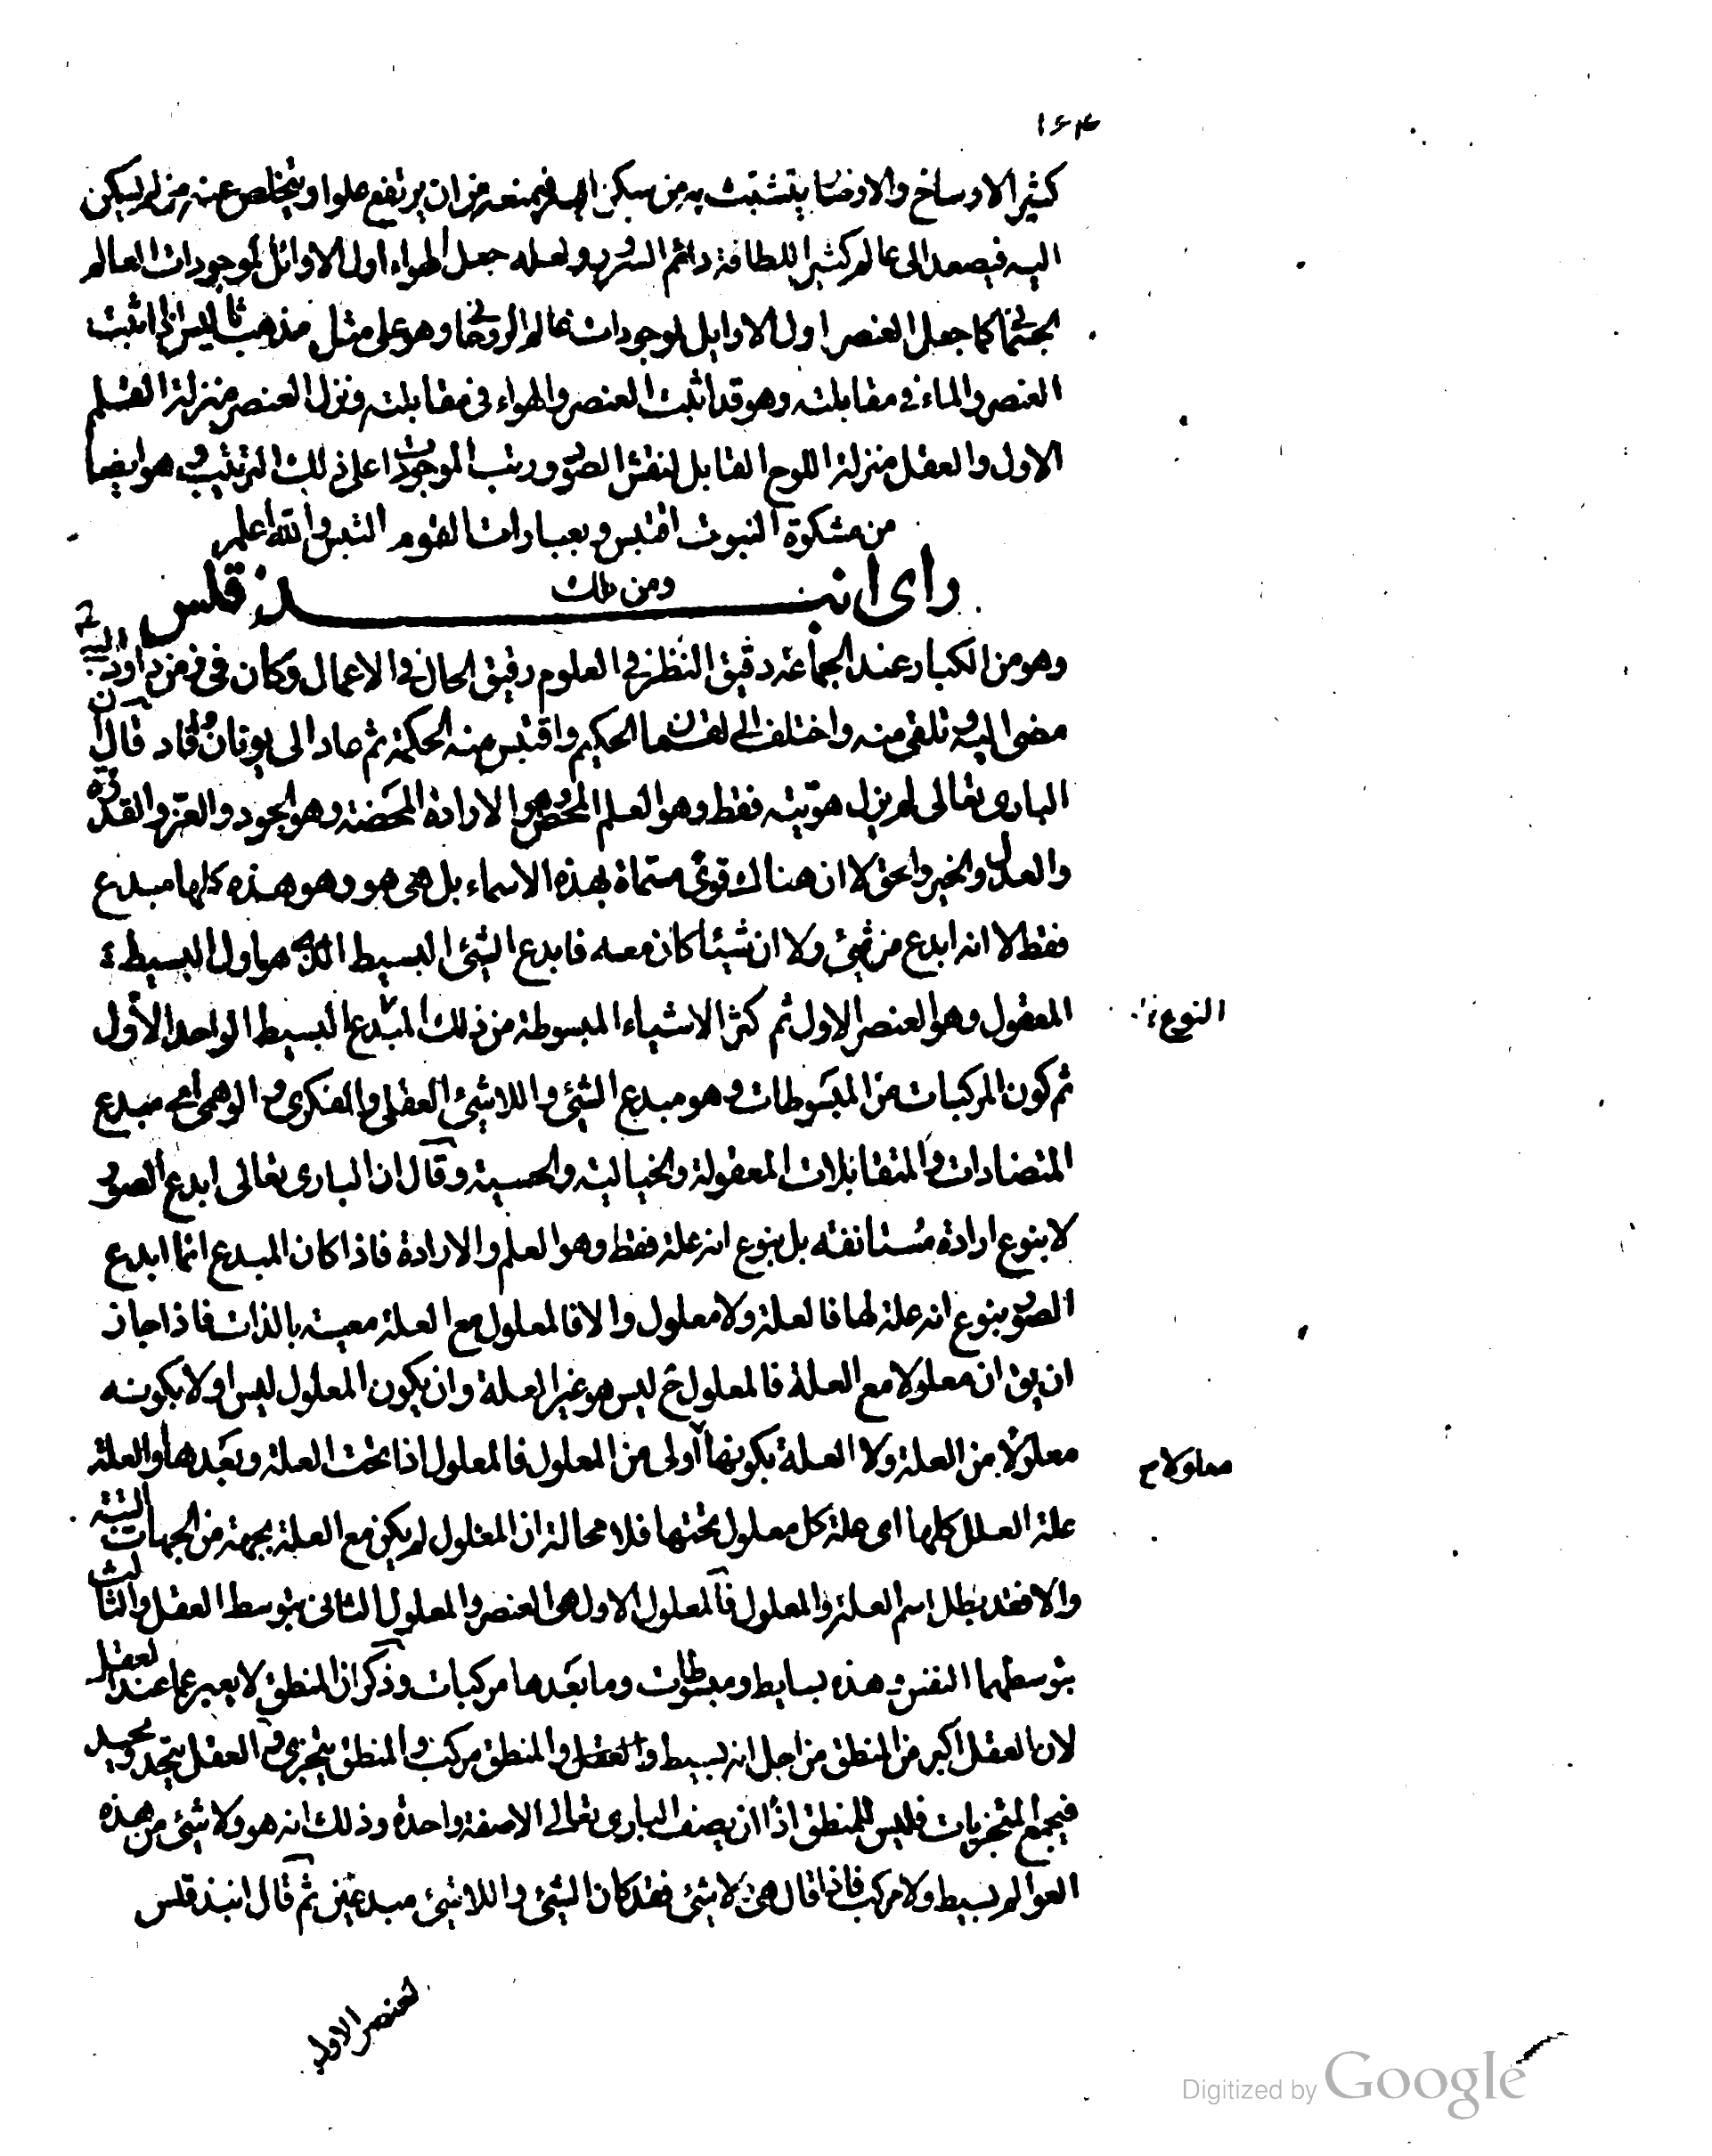 ١٦٤
كثير الاوساخ والاوضا يتشبث به من سكن اليه فيمنعه من ان يرتفع علوا ويتخلص عنه من لم يسكن
اليه فيصعد الى عالم كثير اللطافة دائم السرور ولعله جعل الهواء اول الاوائل لموجودات العالم
الجسمانى كما جعل العنصر اول الاوايل لموجودات عالم الروحانى وهو على مثل مذهب ثاليس اذ اثبت
العنصر والماء فى مقابلته وهو قد اثبت العنصر والهواء فى مقابلته ونزل العنصر منزلة القلم
الاول والعقل منزلة اللوح القابل لنقش الصور ورتب الموجودات على ذلك الترتيب وهو ايضا
من مشكوة النبوت اقتبس وبعبارات القوم التبس والله اعلم
ومن ذلك
راى انبذقلس
وهو من الكبار عند الجماعة دقيق النظر فى العلوم رقيق الحال فى الاعمال وكان فى زمن داود النبى
مضى اليه وتلقى منه واختلف الى لقمان الحكيم واقتبس منه الحكمة ثم عاد الى يونان وافاد قال ان
البارى تعالى لم يزل هويته فقط وهو العلم المحض وهو الارادة المحضة وهو الجود والعز والقدرة
والعدل والخير والحق لا ان هناك قوى مسماة بهذه الاسماء بل هى هو وهو هذه كلها مبدع
فقط لا انه ابدع من شئ ولا ان شيئا كان معه فابدع الشئ البسيط الذى هو اول البسيط
المعقول وهو العنصر الاول ثم كثر الاشياء المبسوطة من ذلك المبدع البسيط الواحد الاول
النوع
ثم كون المركبات من المبسوطات وهو مبدع الشئ واللاشئ العقلى والفكرى والوهمى اى مبدع
المتضادات والمتقابلات المعقولة والخيالية والحسية وقال ان البارى تعالى ابدع الصور
لا بنوع ارادة مستانفة بل بنوع انه علة فقط وهو العلم والارادة فاذا كان المبدع انما ابدع
الصور بنوع انه علة لها فالعلة ولا معلول والا فالمعلول مع العلة معية بالذات فاذا جاز
ان يق ان معلولا مع العلة فالمعلول ح ليس هو غير العلة وان يكون المعلول ليس اولا بكونه
معلولا من العلة ولا العلة بكونها اولى من المعلول فالمعلول اذا تحت العلة وبعدها والعلة
معلولا م
علة العلل كلها اى علة كل معلول تحتها فلا محالة ان المعلول لم يكن مع العلة بجهة من الجهات البتة
والا فقد بطل اسم العلة والمعلول فالمعلول الاول هى العنصر والمعلول الثانى بتوسط العقل والثالث
بتوسطهما النفس وهذه بسايط ومبسوطات وما بعدها مركبات وذكر ان المنطق لا يعبر عما عند العقل
لان العقل اكبر من المنطق من اجل انه بسيط والمنطق مركب والمنطق يتجزى والعقل يتحد ويحد
فيجمع المتجزيات فليس للمنطق اذا ان يصف البارى تعالى الا صفة واحدة وذلك انه هو ولا شئ من هذه
العوالم بسيط ولا مركب فاذا قال هو ولا شئ فقد كان الشئ واللاشئ مبدعين ثم قال انبذقلس
العنصر الاول
Digitized by Google